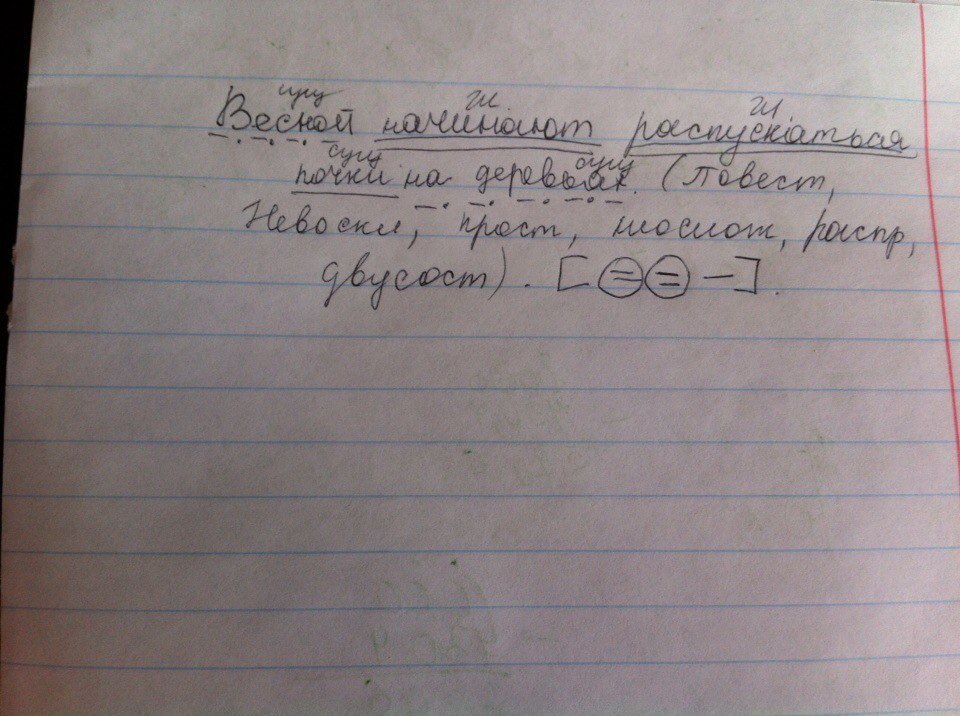 сущ гл. гл.
Весной начинают распускаться
сущ сущ
почки на деревьях. (Повест,
Невоскл, прост, неослож, распр,
двусост). [ = = – ].